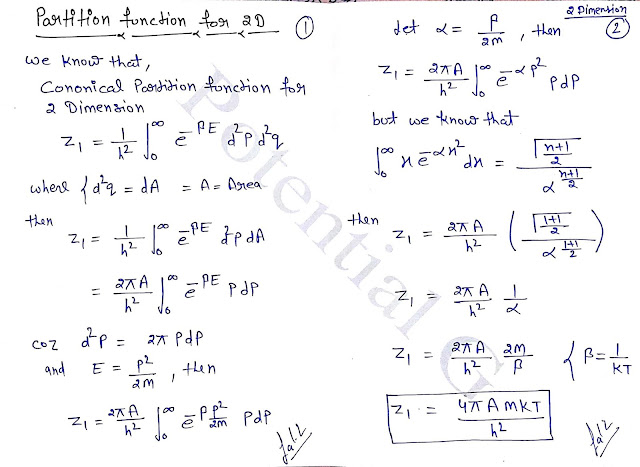 Partition function for 2D
①
we know that,
Canonical Partition function for
2 Dimension
Z₁ = 1/h² ∫₀^∞ e^(-βE) d²p d²q
where { d²q = dA = A = Area
then
Z₁ = 1/h² ∫₀^∞ e^(-βE) d²p dA
= 2πA/h² ∫₀^∞ e^(-βE) p dp
coz d²p = 2π p dp
and E = p²/2m , then
Z₁ = 2πA/h² ∫₀^∞ e^(-β p²/2m) p dp
2 Dimention
②
let α = β/2m , then
Z₁ = 2πA/h² ∫₀^∞ e^(-αp²) p dp
but we know that
∫₀^∞ x e^(-αx²) dx = Γ((n+1)/2) / α^((n+1)/2)
then
Z₁ = 2πA/h² ( Γ((1+1)/2) / α^((1+1)/2) )
Z₁ = 2πA/h² 1/α
Z₁ = 2πA/h² 2m/β { β = 1/KT
Z₁ = 4πAmKT/h²
Potential G